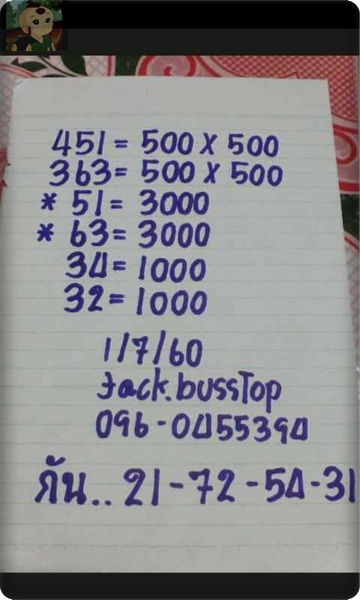 451 = 500 X 500
363 = 500 X 500
* 51 = 3000
* 63 = 3000
34 = 1000
32 = 1000
1/7/60
Jack.bussTop
096-0455394
กัน.. 21-72-54-31